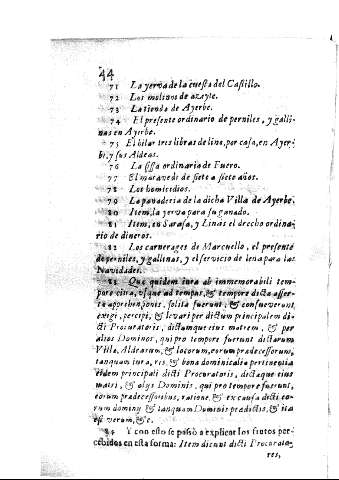 44
71 La yerva de la cuesta del Castillo.
72 Los molinos de azeyte.
73 La tienda de Ayerbe.
74 El presente ordinario de perniles, y galli-
nas en Ayerbe.
75 El hilar tres libras de lino, por casa, en Ayer-
bi, y sus Aldeas.
76 La sissa ordinaria de Fuero.
77 El maravedi de siete a siete años.
78 Los homicidios.
79 La panaderia de la dicha Villa de Ayerbe.
80 Item, la yerva para su ganado.
81 Item, en Sarasa, y Linas el drecho ordina-
rio de dineros.
82 Los carnerages de Marcuello, el presente
de perniles, y gallinas, y el servicio de lena para las
Navidades.
83 Que quidem iura ab immemorabili tem-
pore citra, usque ad tempus, & tempore dictæ asser-
tæ apprehensionis, solita fuerunt, & consueverunt
exigi, percipi, & levari per dictum principalem di-
cti Procuratoris, dictamque eius matrem, & per
alios Dominos, qui pro tempore fuerunt dictarum
Villæ, Aldearum, & locorum, eorum prædecessorum,
tanquam iura, res, & bona dominicalia pertinentia
eidem principali dicti Procuratoris, dictæque eius
matri, & alijs Dominis, qui pro tempore fuerunt,
eorum prædecessoribus, ratione, & ex causa dicti eo-
rum dominij & tanquam Dominis prædictis, & ita
est verum, &c.
84 Y con esto se passò a explicar los frutos per-
cebidos en esta forma: Item dicunt dicti Procurato-
res,